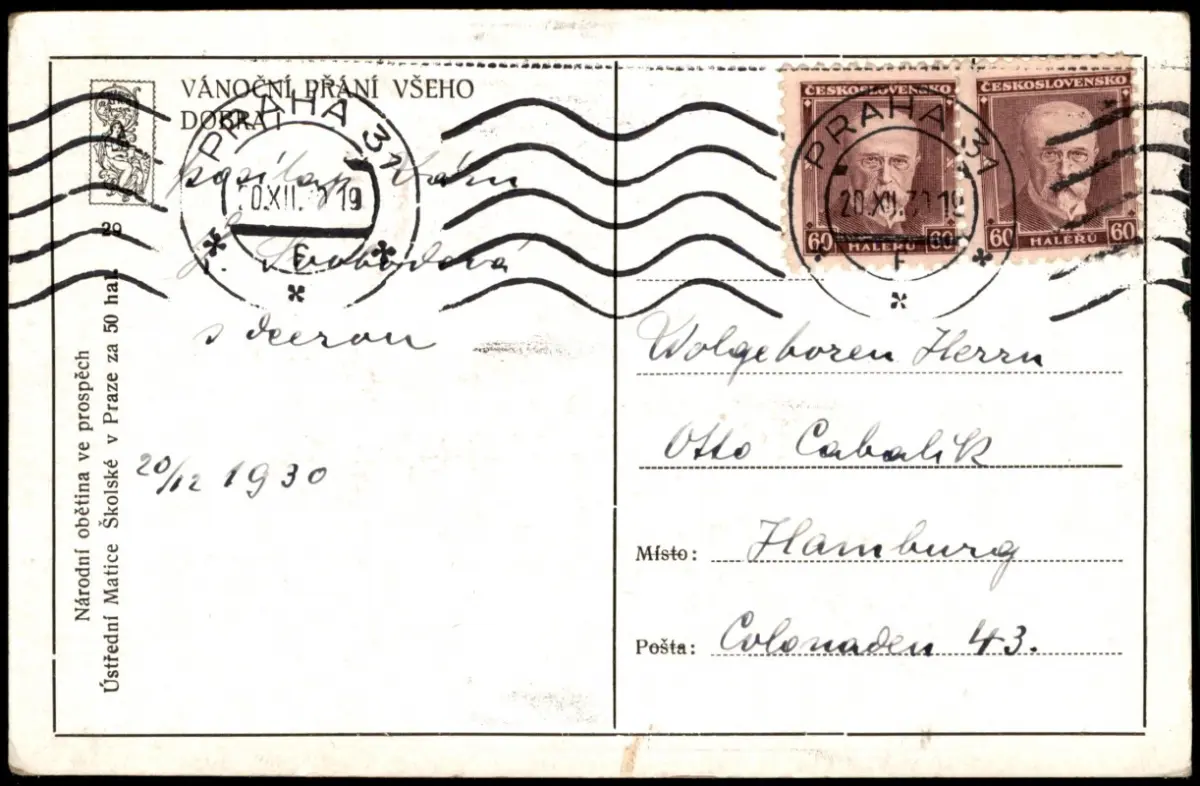 VÁNOČNÍ PŘÁNÍ VŠEHO
DOBRA!
posílají Vám
L. Svobodová
s dcerou
20/12 1930
29
Národní obětina ve prospěch
Ústřední Matice Školské v Praze za 50 hal.
PRAHA 31
20.XII.30 19
F
PRAHA 31
20.XII.30 19
F
ČESKOSLOVENSKO
60 HALÉŘŮ 60
ČESKOSLOVENSKO
60 HALÉŘŮ 60
Wolgeboren Herrn
Otto Cabalik
Místo: Hamburg
Pošta: Colonaden 43.